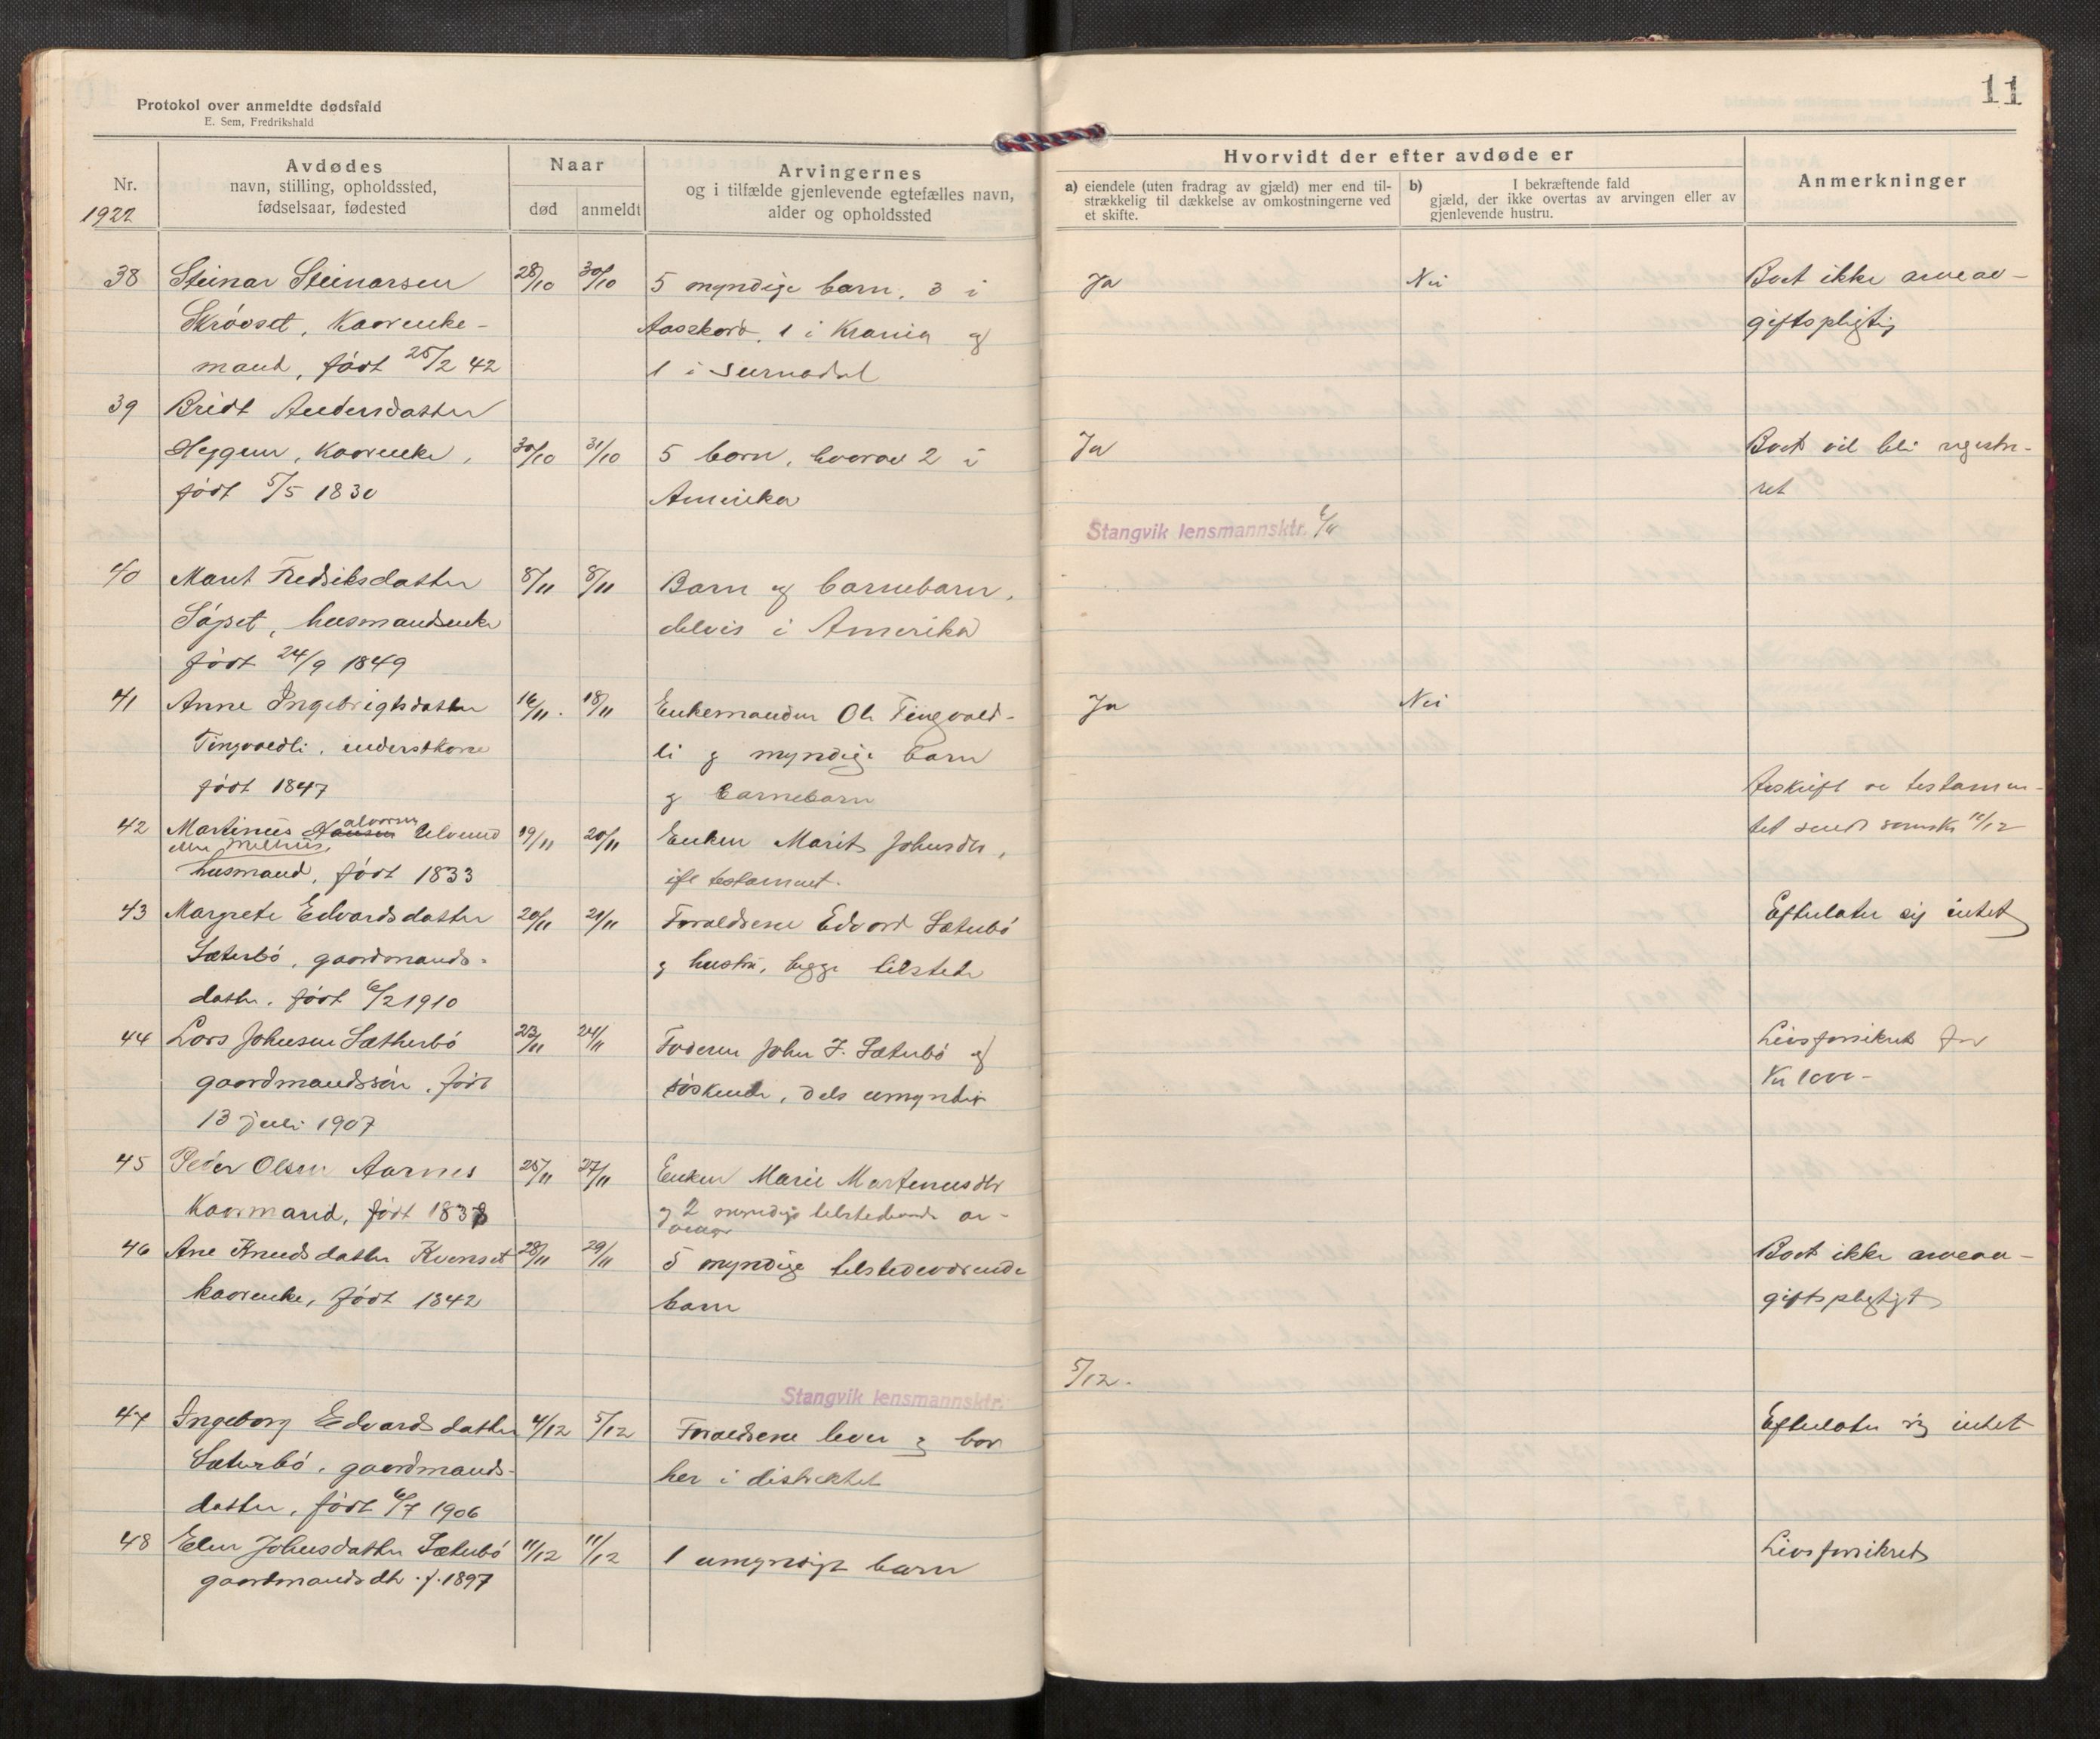 Protokol over anmeldte dødsfald
E. Sem, Fredrikshald
11
Nr.
1922
Avdødes
navn, stilling, opholdssted,
fødselsaar, fødested
Naar
død
anmeldt
Arvingernes
og i tilfælde gjenlevende egtefælles navn,
alder og opholdssted
Hvorvidt der efter avdøde er
a) eiendele (uten fradrag av gjæld) mer end til-
strækkelig til dækkelse av omkostningerne ved
et skifte.
b) I bekræftende fald
gjæld, der ikke overtas av arvingen eller av
gjenlevende hustru.
Anmerkninger
38 Steinar Steinarsen 28/10 30/10 5 myndige barn, 3 i Ja Nei Boet ikke arveav-
Skrövset, Kaarenke- Aasskard, 1 i Krania og giftspligtig
mand, født 25/2 42 1 i Surnadal
39 Bridt Andersdatter
Heggem, Kaarenke, 30/10 31/10 5 barn, hvorav 2 i Ja Boet vil bli registre-
født 5/5 1830 Amerika ret
Stangvik lensmannsktr. 6/11
40 Marit Fredriksdatter 8/11 8/11 Barn og barnebarn,
Söpset, husmandsenke delvis i Amerika
født 24/9 1849
41 Anne Ingebrigtsdatter 16/11. 18/11 Enkemanden Ole Tingvold- Ja Nei
Tingvoldli, inderstkone li og myndige barn
født 1847 og barnebarn
Avskrift av testamen-
42 Martinus Hansen alvorsen Ulvund 19/11 20/11 Enken Marit Johnsdtr, tet sendt sorensk 12/12
eller Melhus,
husmand, født 1833 ifl testament.
43 Margrete Edvardsdatter 20/11 21/11 Foræld​rene Edvard Sæterbö Efterlater sig intet
Sæterbö, gaardmands- og hustru, begge tilstede
datter, født 6/2 1910
44 Lars Johnsen Sætherbö 23/11 24/11 Faderen John J. Sæterbö og Livsforsikret for
gaardmandssön, født söskende, dels umyndig Kr 1000-
13 juli 1907
45 Peder Olsen Aarnes 25/11 27/11 Enken Marie Martinusdtr
Kaarmand, født 1838 og 2 myndige tilstedeværende ar-
vinger
46 Ane Knudsdatter Kvenset 28/11 29/11 5 myndige tilstedeværende Boet ikke arveav-
Kaarenke, født 1842 barn giftspligtigt
Stangvik lensmannsktr. 5/12.
47 Ingeborg Edvardsdatter 4/12 5/12 Forældrene lever og bor Efterlater sig intet
Sæterbö, gaardmands- her i distriktet
datter, født 6/7 1906
48 Elen Johnsdatter Sæterbö 11/12 11/12 1 umyndigt barn Livsforsikret
gaardmandsdtr. f. 1897